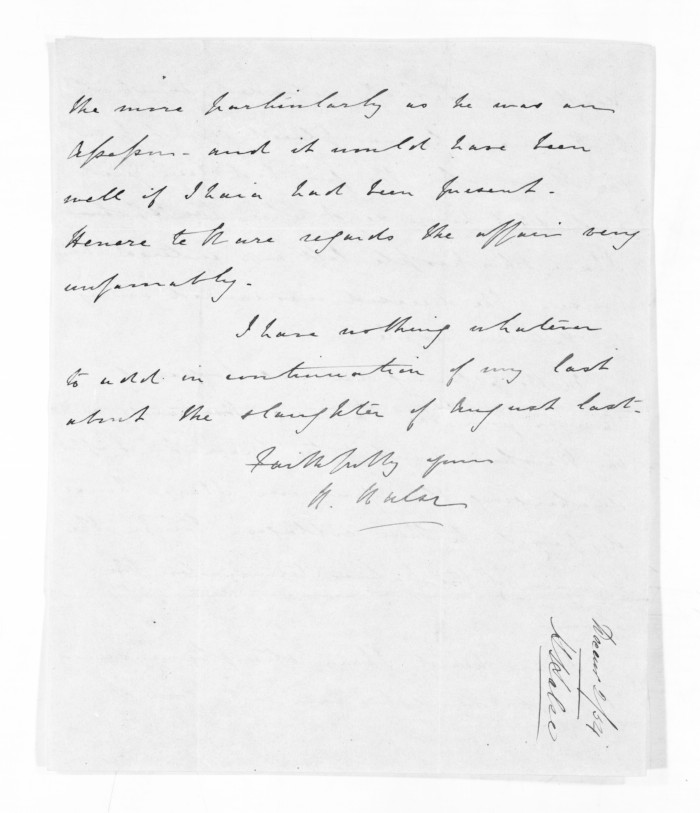 the more particularly as he was an
Assessor - and it would have been
well if Ihaia had been present.
Henere te Hare regards the affair very
unfavorably.
I have nothing whatever
to add in continuation of my last
about the slaughter of August last.
Faithfully yours
H. Halse
H Halse